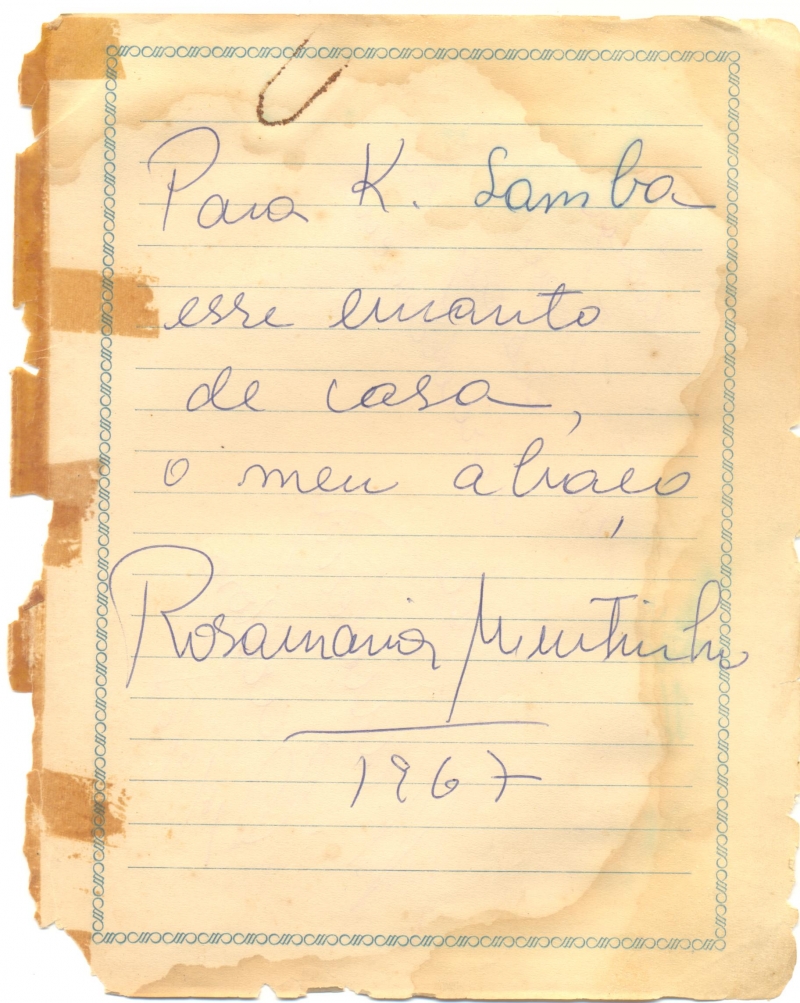 Para K. Samba
esse encanto
de casa,
o meu abraço
Rosamaria Murtinho
1967